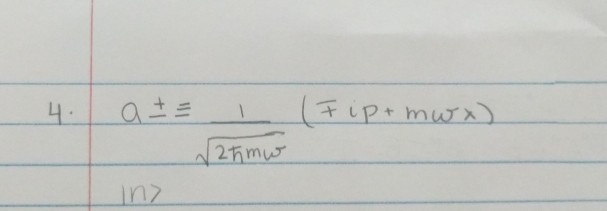 4. a± ≡ 1/√(2ħmω) (∓ip + mωx)
|n>